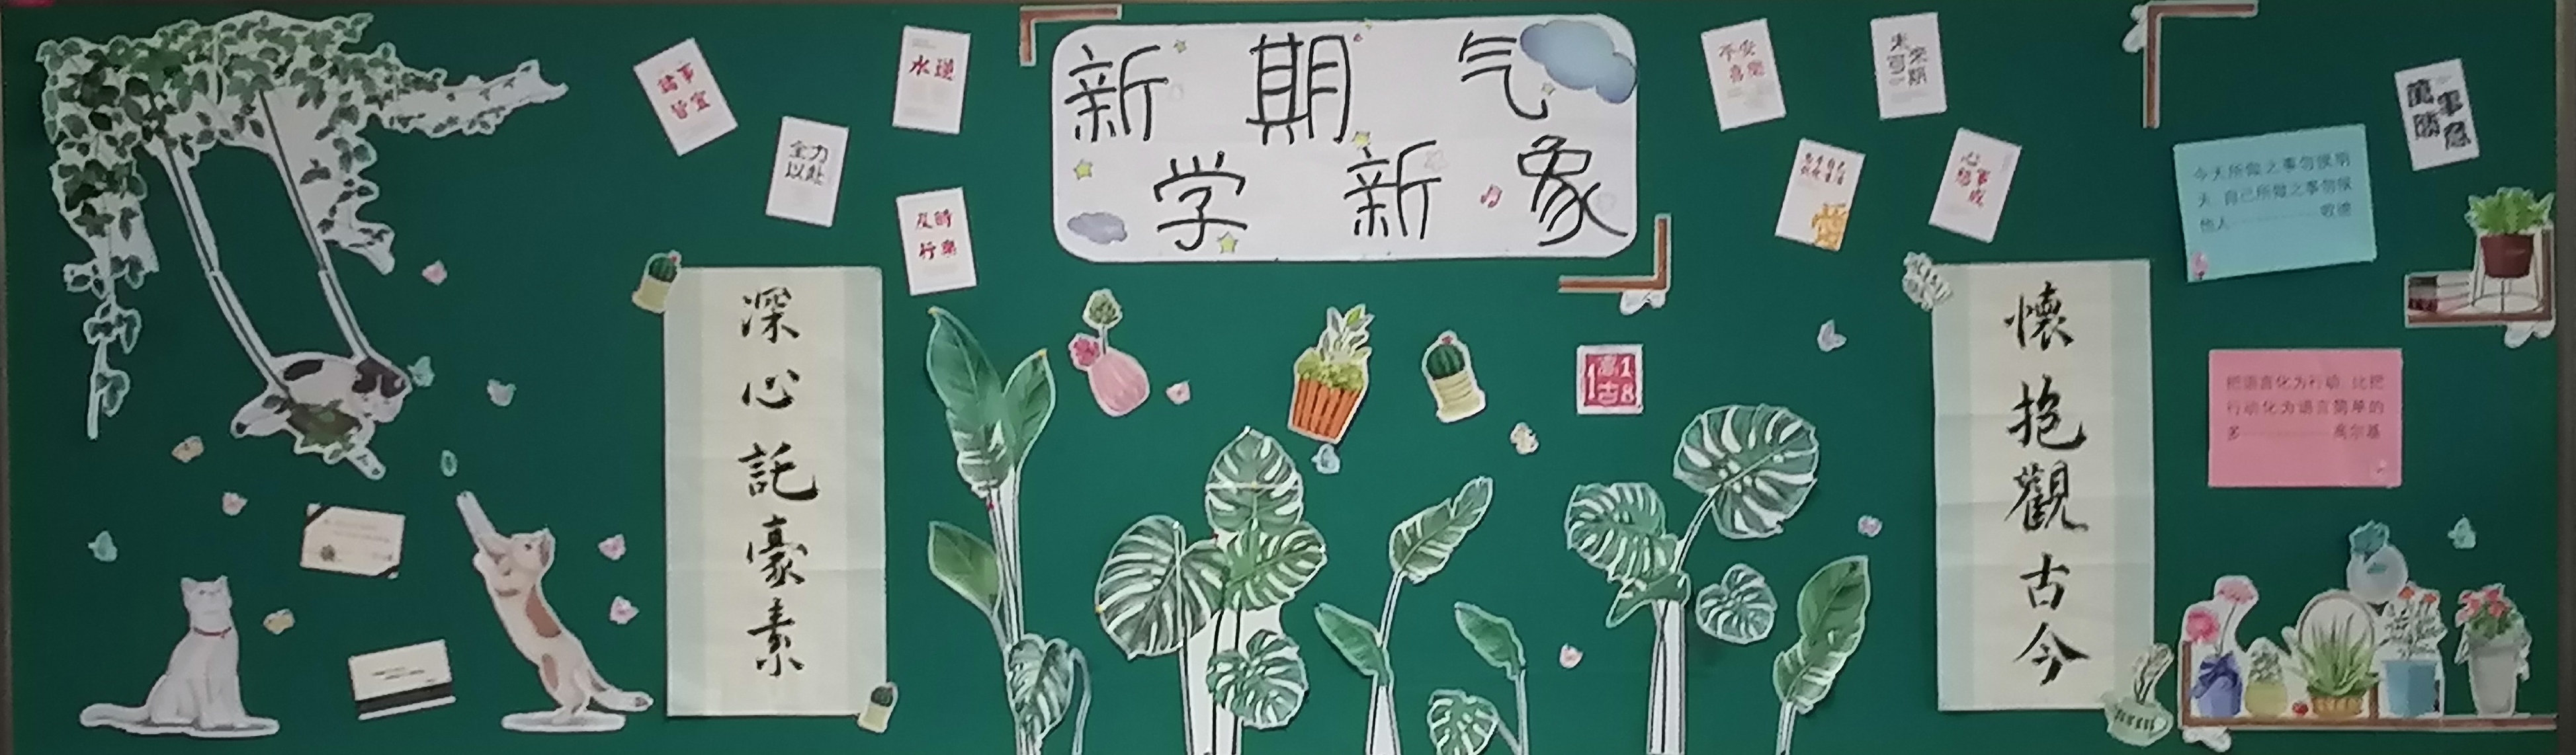 新 期 气
学 新 象
諸事
皆宜
水逆
全力
以赴
及時
行樂
平安
喜樂
未來
可期
心想事成
萬事
勝意
深心託豪素
懷抱觀古今
今天所做之事勿候明
天,自己所做之事勿候
他人————歌德
把语言化为行动,比把
行动化为语言简单的
多————高尔基